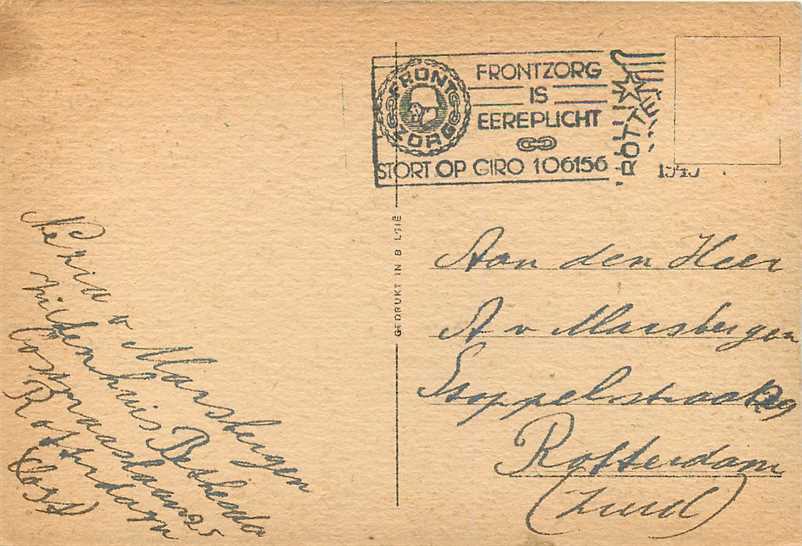 FRONT ZORG
FRONTZORG
IS
EEREPLICHT
STORT OP GIRO 106156
ROTTE
1943
GEDRUKT IN B LGIË
Aan den Heer
A v Marsbergen
Rotterdam
(Zuid)
v Marsbergen
Ziekenhuis Bethesda
Oostmaaslaan 25
Rotterdam
(Oost)